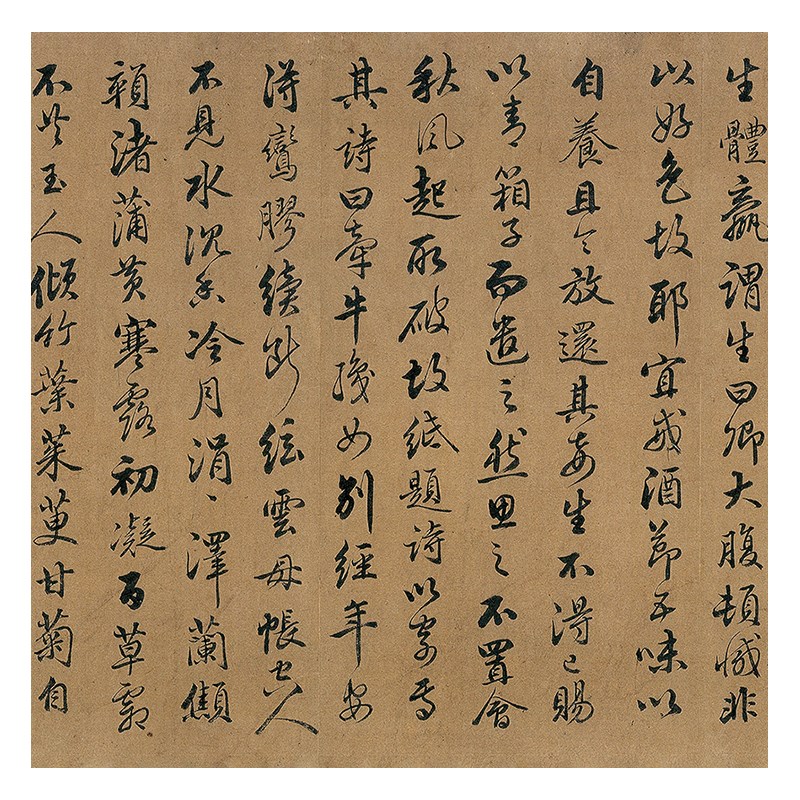 生體羸謂生曰卿大腹頓減非
以好色故耶宜戒酒節五味以
自養且令放還其妾生不得已賜
以青箱子而遣之然思之不置會
秋風起取破故紙題詩以寄焉
其詩曰牽牛織女別經年安
得鸞膠續斷絃雲母帳空人
不見水沉香冷月涓〻澤蘭憔
顇渚蒲黃寒露初凝百草霜
不共玉人傾竹葉茱萸甘菊自